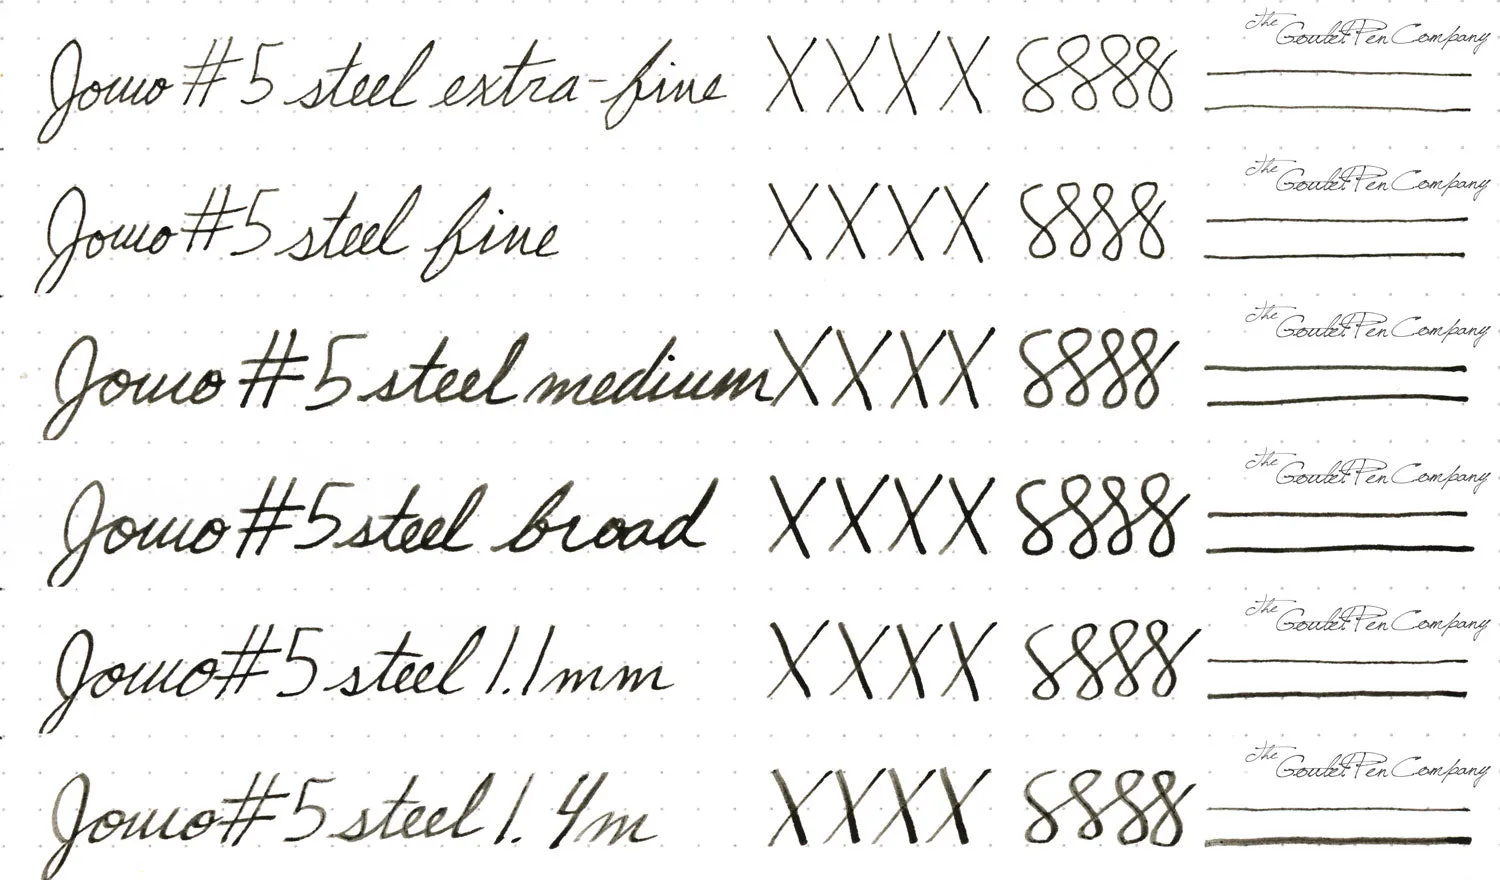 Jowo #5 steel extra-fine XXXX 8888
The Goulet Pen Company
Jowo #5 steel fine XXXX 8888
The Goulet Pen Company
Jowo #5 steel medium XXXX 8888
The Goulet Pen Company
Jowo #5 steel broad XXXX 8888
The Goulet Pen Company
Jowo #5 steel 1.1mm XXXX 8888
The Goulet Pen Company
Jowo #5 steel 1.4m XXXX 8888
The Goulet Pen Company